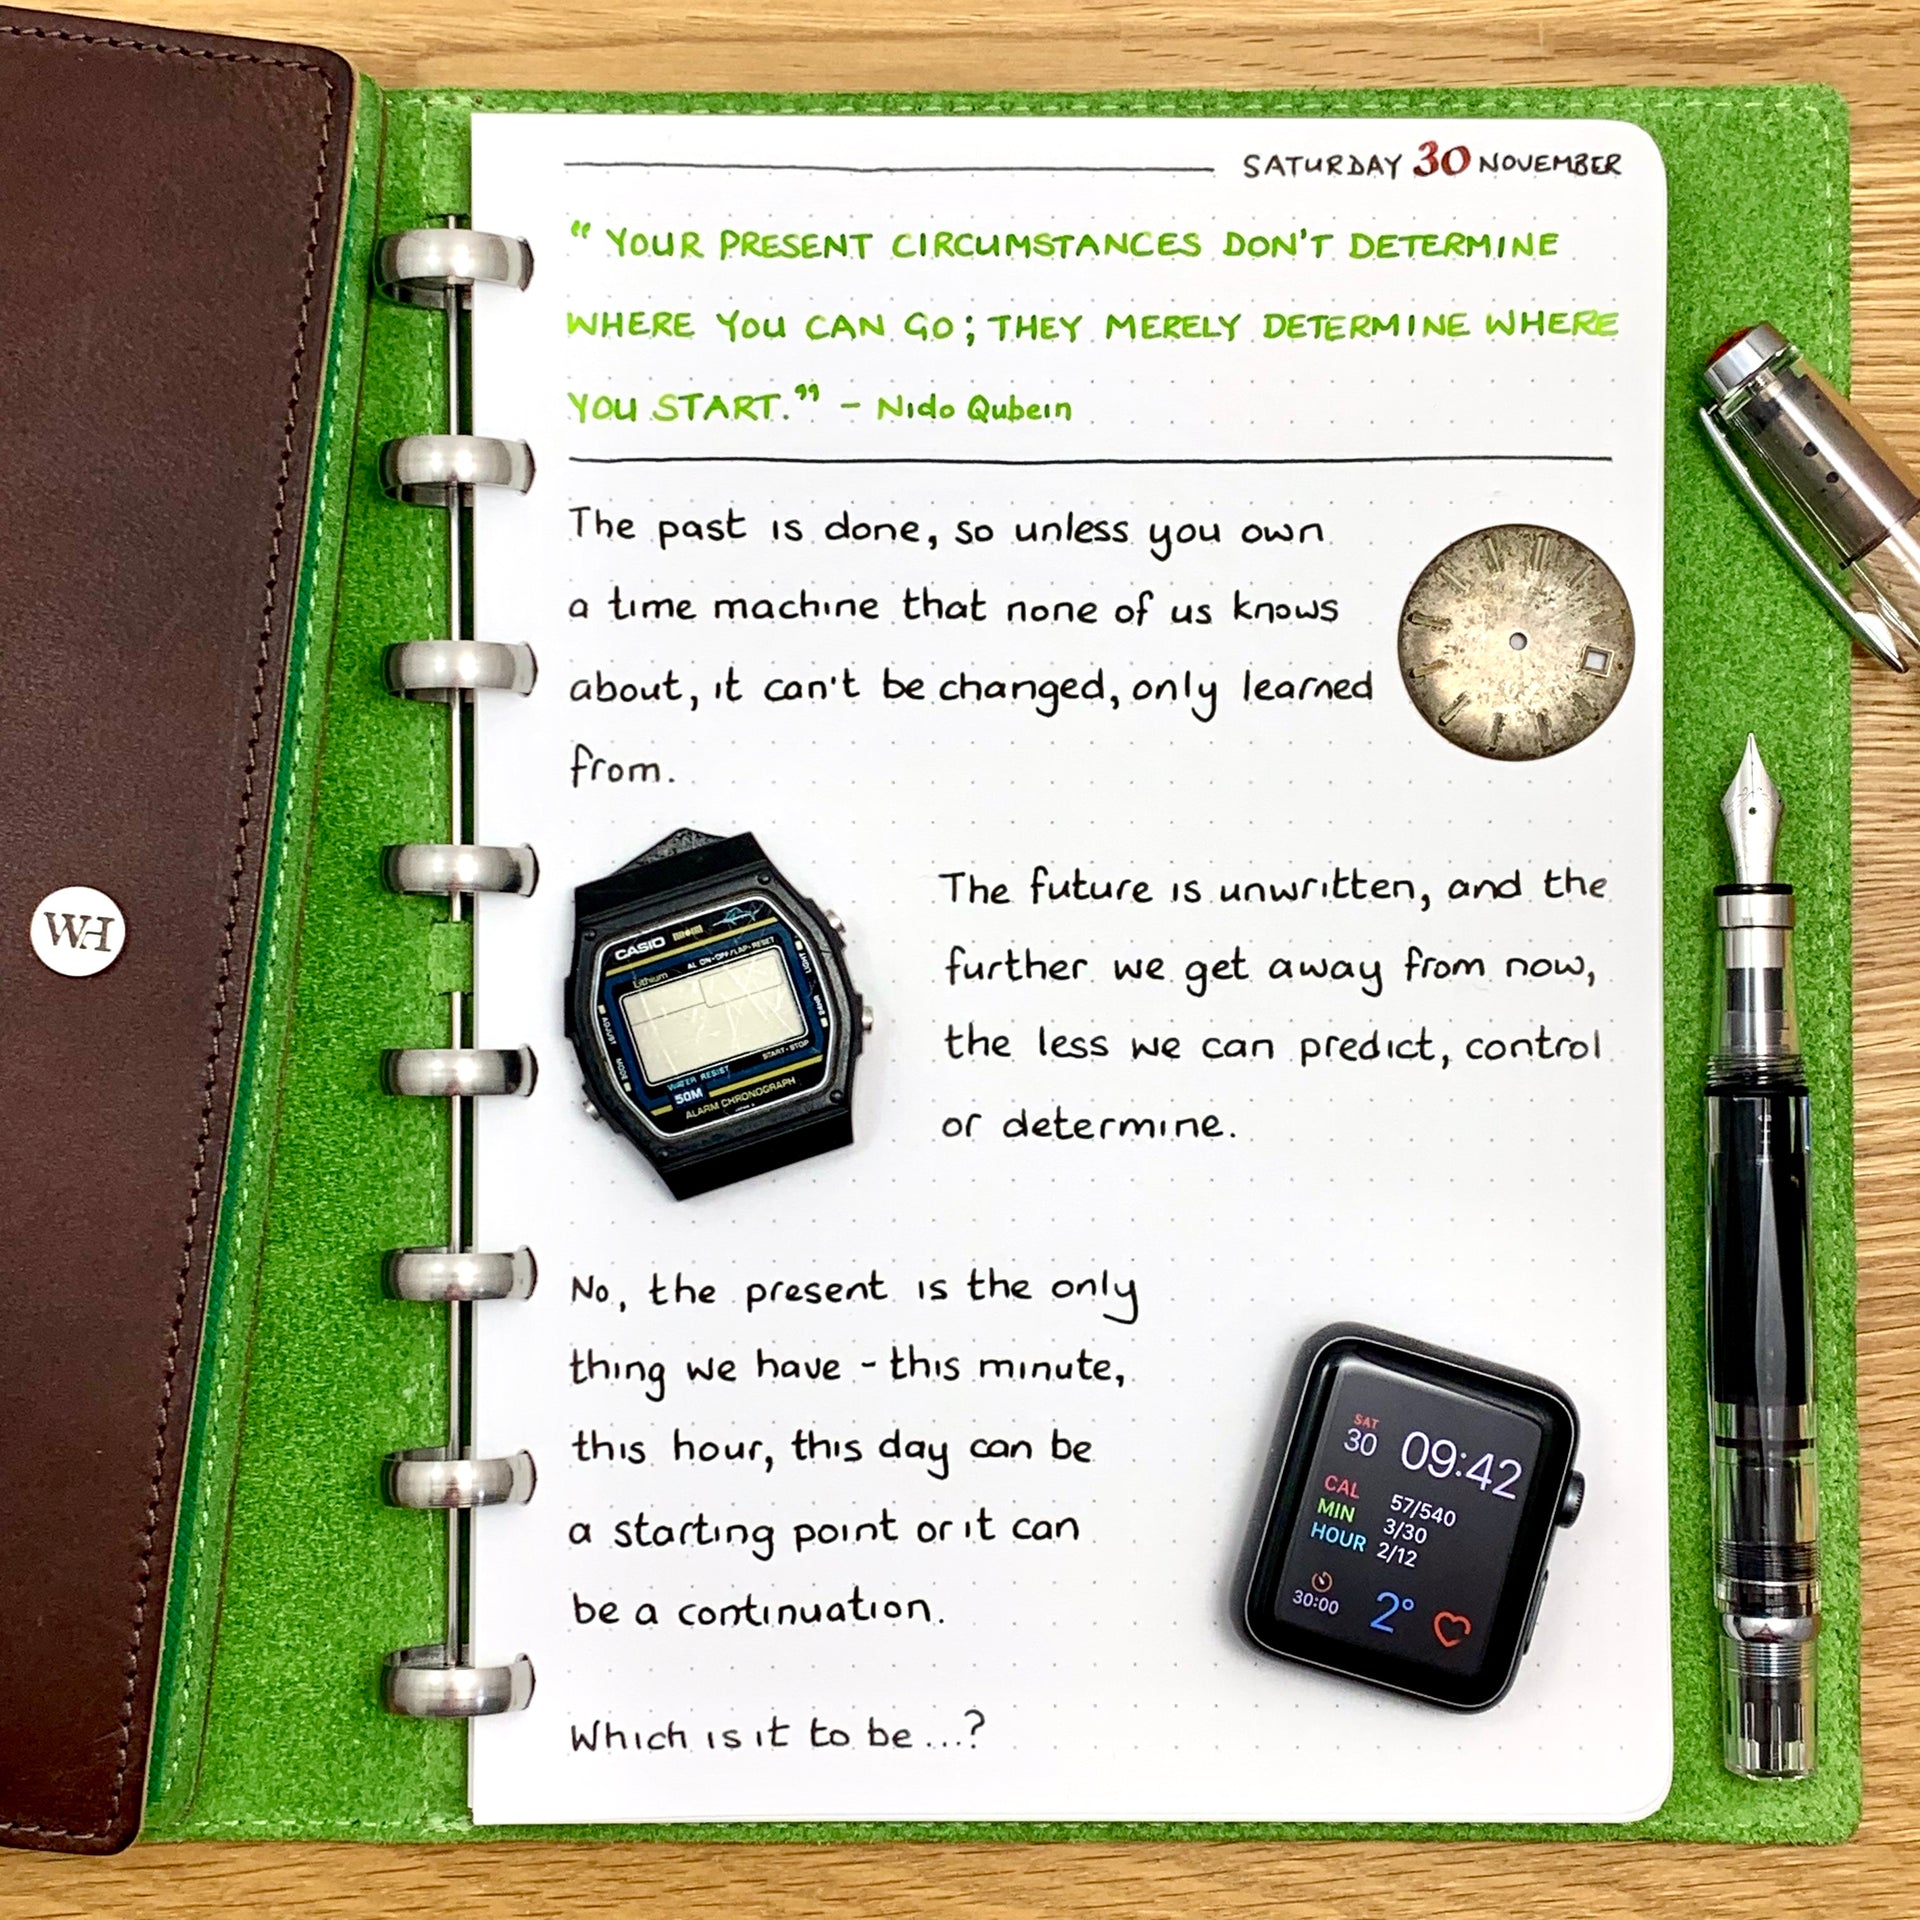 SATURDAY 30 NOVEMBER
“ YOUR PRESENT CIRCUMSTANCES DON'T DETERMINE
WHERE YOU CAN GO; THEY MERELY DETERMINE WHERE
YOU START.” – Nido Qubein
The past is done, so unless you own
a time machine that none of us knows
about, it can't be changed, only learned
from.
WH
CASIO
Lithium
AL ON•OFF/LAP•RESET
LIGHT
24HR
ADJUST
MODE
START•STOP
WATER RESIST
50M
ALARM CHRONOGRAPH
The future is unwritten, and the
further we get away from now,
the less we can predict, control
or determine.
No, the present is the only
thing we have - this minute,
this hour, this day can be
a starting point or it can
be a continuation.
SAT
30 09:42
CAL 57/540
MIN 3/30
HOUR 2/12
30:00 2°
Which is it to be...?